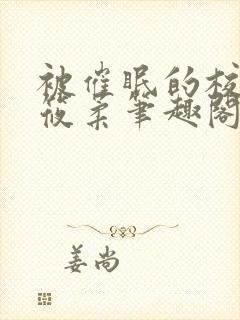 被催眠的校
筱柔笔趣阁
姜尚